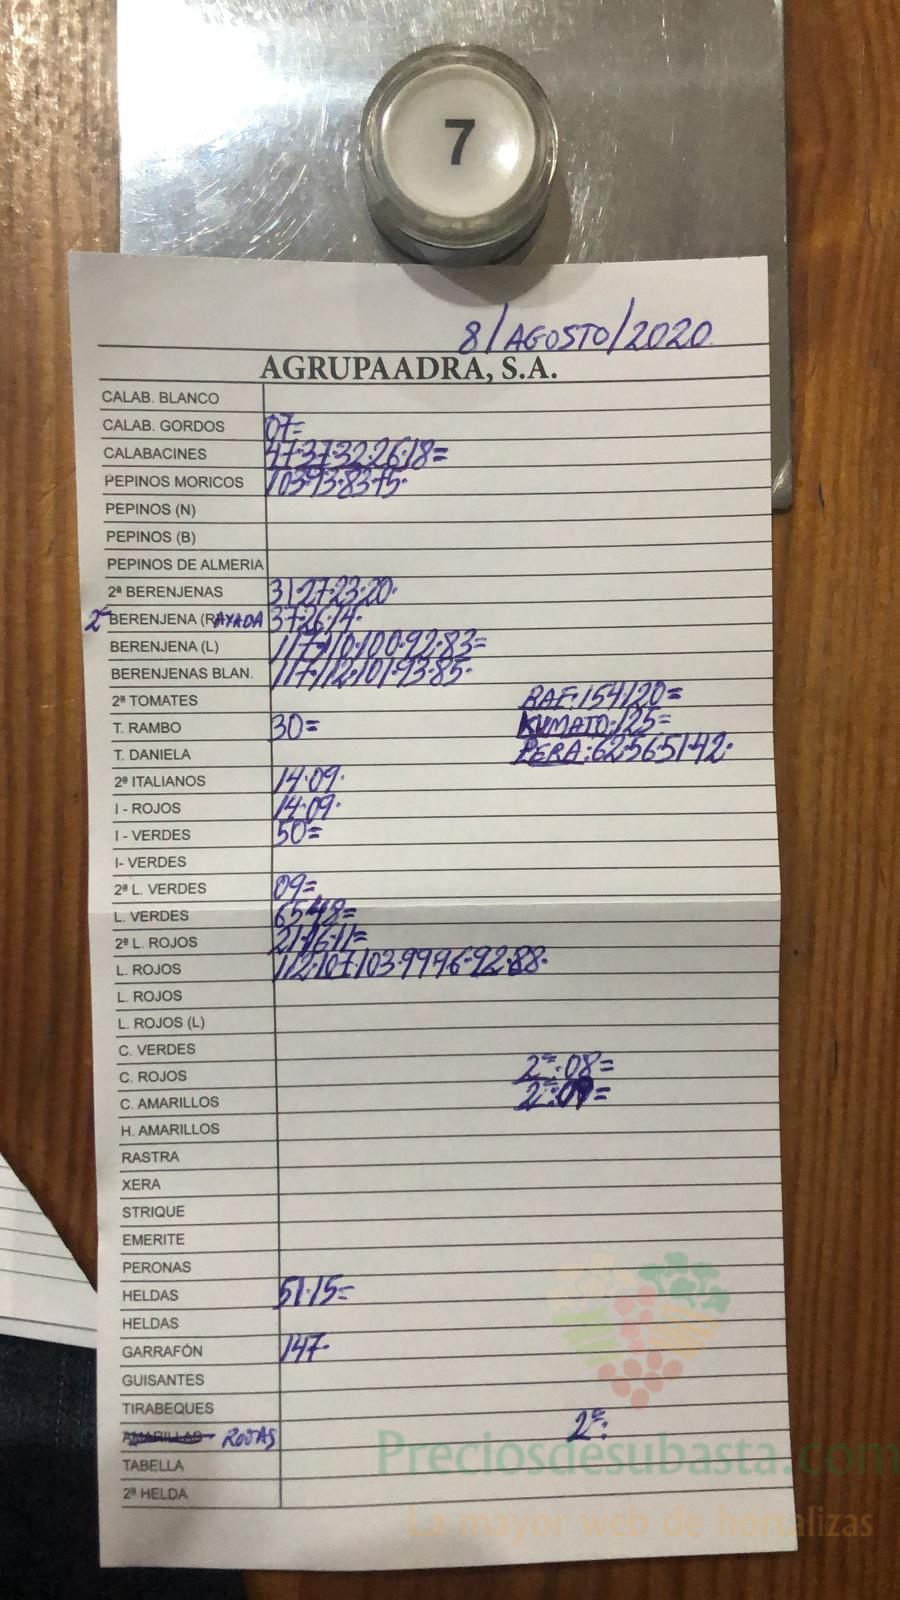 7
8/AGOSTO/2020
AGRUPAADRA, S.A.
CALAB. BLANCO
CALAB. GORDOS 07=
CALABACINES 47·37·32·26·18=
PEPINOS MORICOS 103·93·83·75·
PEPINOS (N)
PEPINOS (B)
PEPINOS DE ALMERIA
2ª BERENJENAS 31·27·23·20·
2ª BERENJENA (RAYADA 37·26·14·
BERENJENA (L) 117·110·100·92·83=
BERENJENAS BLAN. 117·112·101·93·85·
2ª TOMATES RAF:154120=
T. RAMBO 30= KUMATO:125=
T. DANIELA PERA:62·56·51·42·
2ª ITALIANOS 14·09·
I - ROJOS 14·09·
I - VERDES 50=
I- VERDES
2ª L. VERDES 09=
L. VERDES 65·48=
2ª L. ROJOS 21·16·11=
L. ROJOS 112·107·103·99·96·92·88·
L. ROJOS
L. ROJOS (L)
C. VERDES
C. ROJOS 2ª:08=
C. AMARILLOS 2ª:09=
H. AMARILLOS
RASTRA
XERA
STRIQUE
EMERITE
PERONAS
HELDAS 51·15=
HELDAS
GARRAFÓN 147·
GUISANTES
TIRABEQUES
AMARILLAS ROJAS 2ª:
TABELLA
2ª HELDA
Preciosdesubasta.com
La mayor web de hortalizas